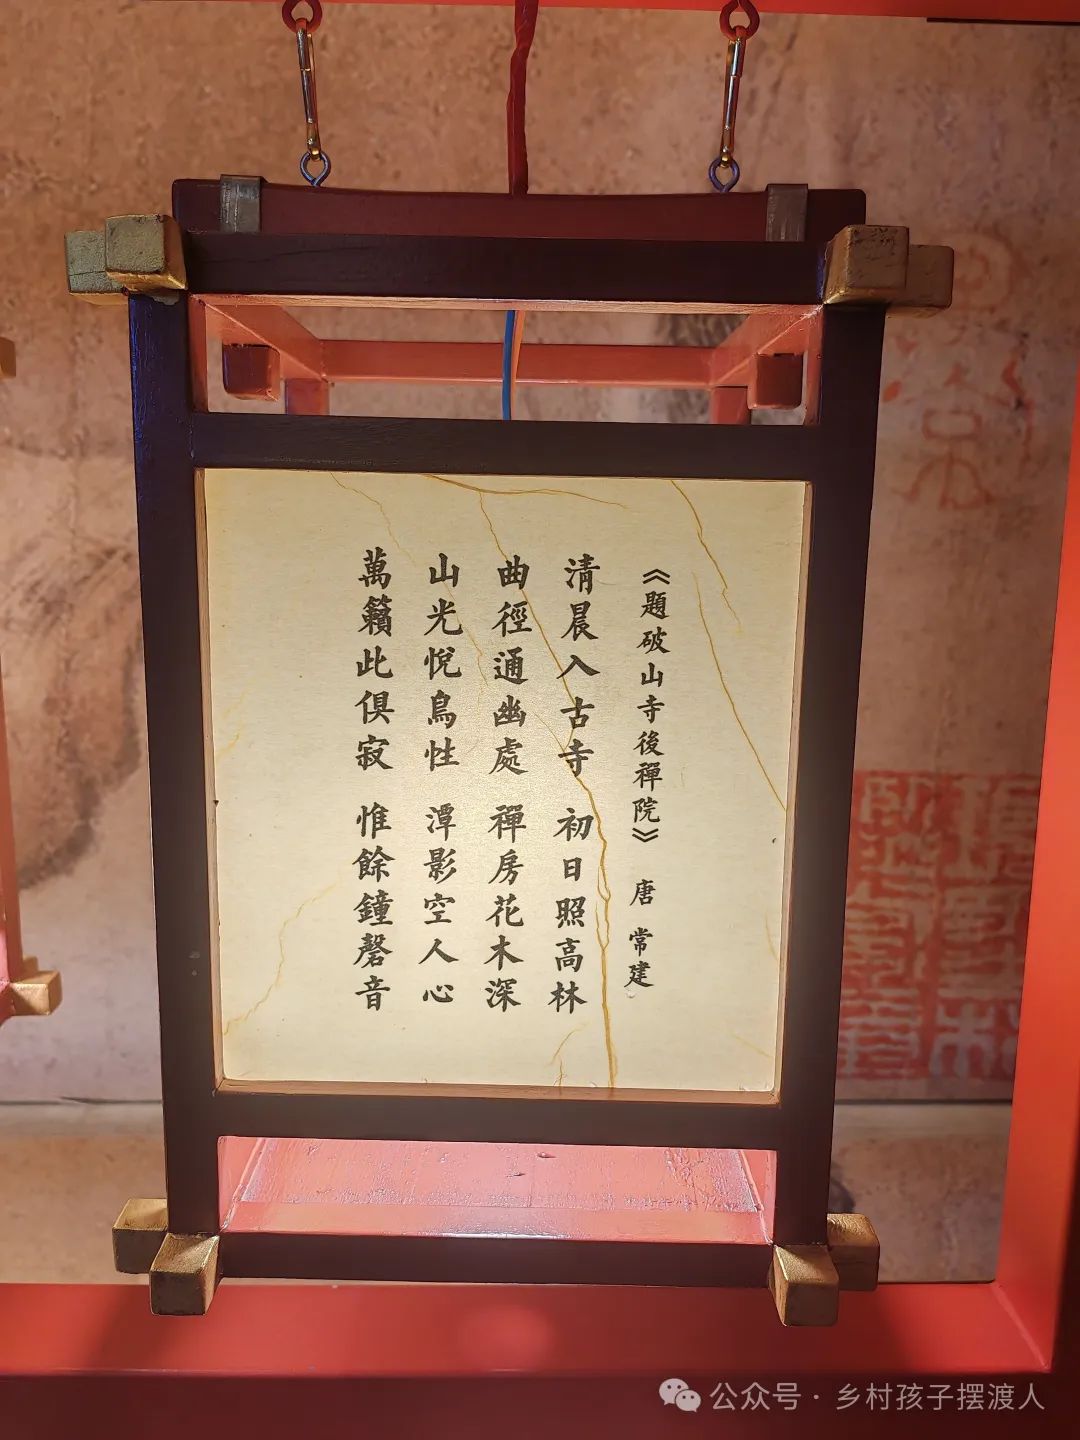 《題破山寺後禪院》 唐 常建
清晨入古寺 初日照高林
曲徑通幽處 禪房花木深
山光悅鳥性 潭影空人心
萬籟此俱寂 惟餘鐘磬音
公众号·乡村孩子摆渡人